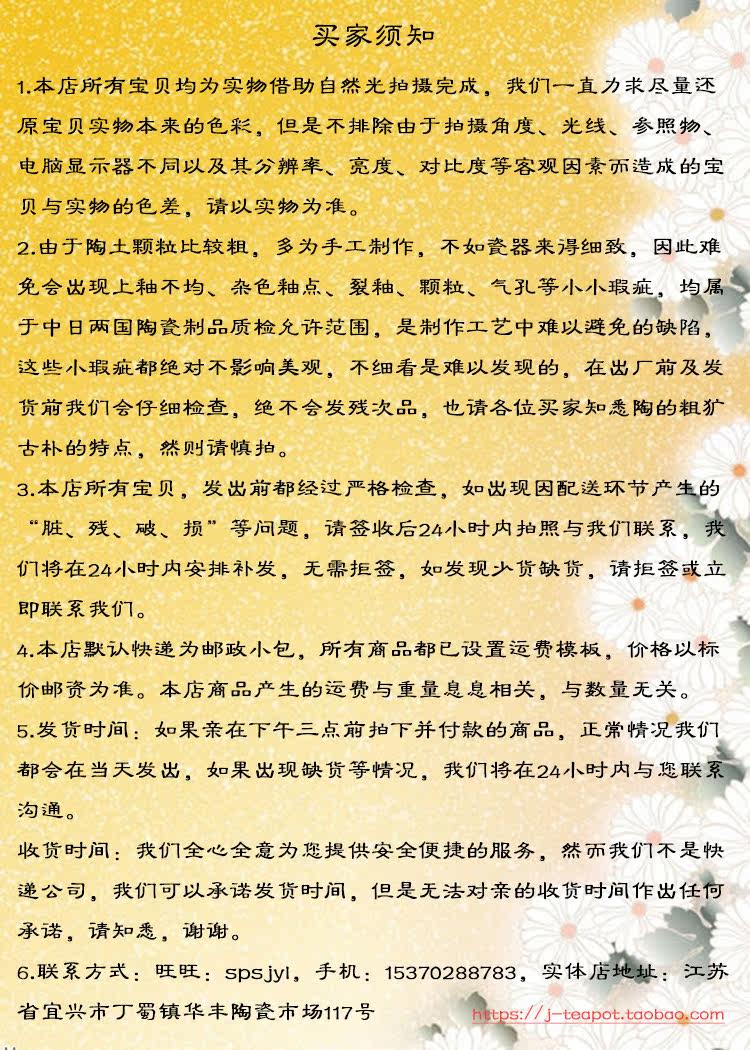 买家须知
1.本店所有宝贝均为实物借助自然光拍摄完成，我们一直力求尽量还
原宝贝实物本来的色彩，但是不排除由于拍摄角度、光线、参照物、
电脑显示器不同以及其分辨率、亮度、对比度等客观因素而造成的宝
贝与实物的色差，请以实物为准。
2.由于陶土颗粒比较粗，多为手工制作，不如瓷器来得细致，因此难
免会出现上釉不均、杂色釉点、裂釉、颗粒、气孔等小小瑕疵，均属
于中日两国陶瓷制品质检允许范围，是制作工艺中难以避免的缺陷，
这些小瑕疵都绝对不影响美观，不细看是难以发现的，在出厂前及发
货前我们会仔细检查，绝不会发残次品，也请各位买家知悉陶的粗犷
古朴的特点，然则请慎拍。
3.本店所有宝贝，发出前都经过严格检查，如出现因配送环节产生的
“脏、残、破、损”等问题，请签收后24小时内拍照与我们联系，我
们将在24小时内安排补发，无需拒签，如发现少货缺货，请拒签或立
即联系我们。
4.本店默认快递为邮政小包，所有商品都已设置运费模板，价格以标
价邮资为准。本店商品产生的运费与重量息息相关，与数量无关。
5.发货时间：如果亲在下午三点前拍下并付款的商品，正常情况我们
都会在当天发出，如果出现缺货等情况，我们将在24小时内与您联系
沟通。
收货时间：我们全心全意为您提供安全便捷的服务，然而我们不是快
递公司，我们可以承诺发货时间，但是无法对亲的收货时间作出任何
承诺，请知悉，谢谢。
6.联系方式：旺旺：spsjyl，手机：15370288783，实体店地址：江苏
省宜兴市丁蜀镇华丰陶瓷市场117号
https://j-teapot.taobao.com